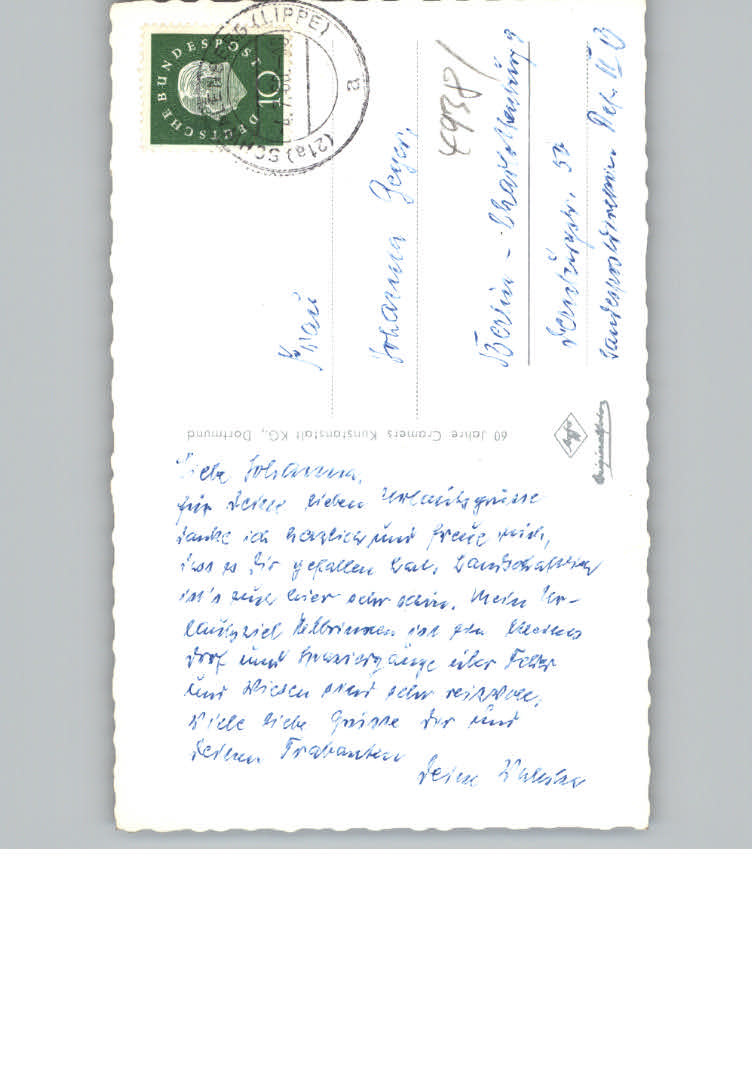 DEUTSCHE BUNDESPOST
10
(21a) (LIPPE)
a
4938/
Frau
Johanna Geyer,
Berlin - Charlottenburg 9
57
Landespostdirektion. Ref. II B
60 Jahre Cramers Kunstanstalt KG., Dortmund
Agfa
Originalfoto
Liebe Johanna,
für Deine lieben Urlaubsgrüsse
danke ich herzlich und freue mich,
dass es Dir gefallen hat. Landschaftlich
ist's auch hier sehr schön. Mein Ur-
laubsziel ist ein kleines
Dorf und Spaziergänge über Felder
und Wiesen sind sehr reizvoll.
Viele liebe Grüsse Dir und
Deinen Trabanten
Deine